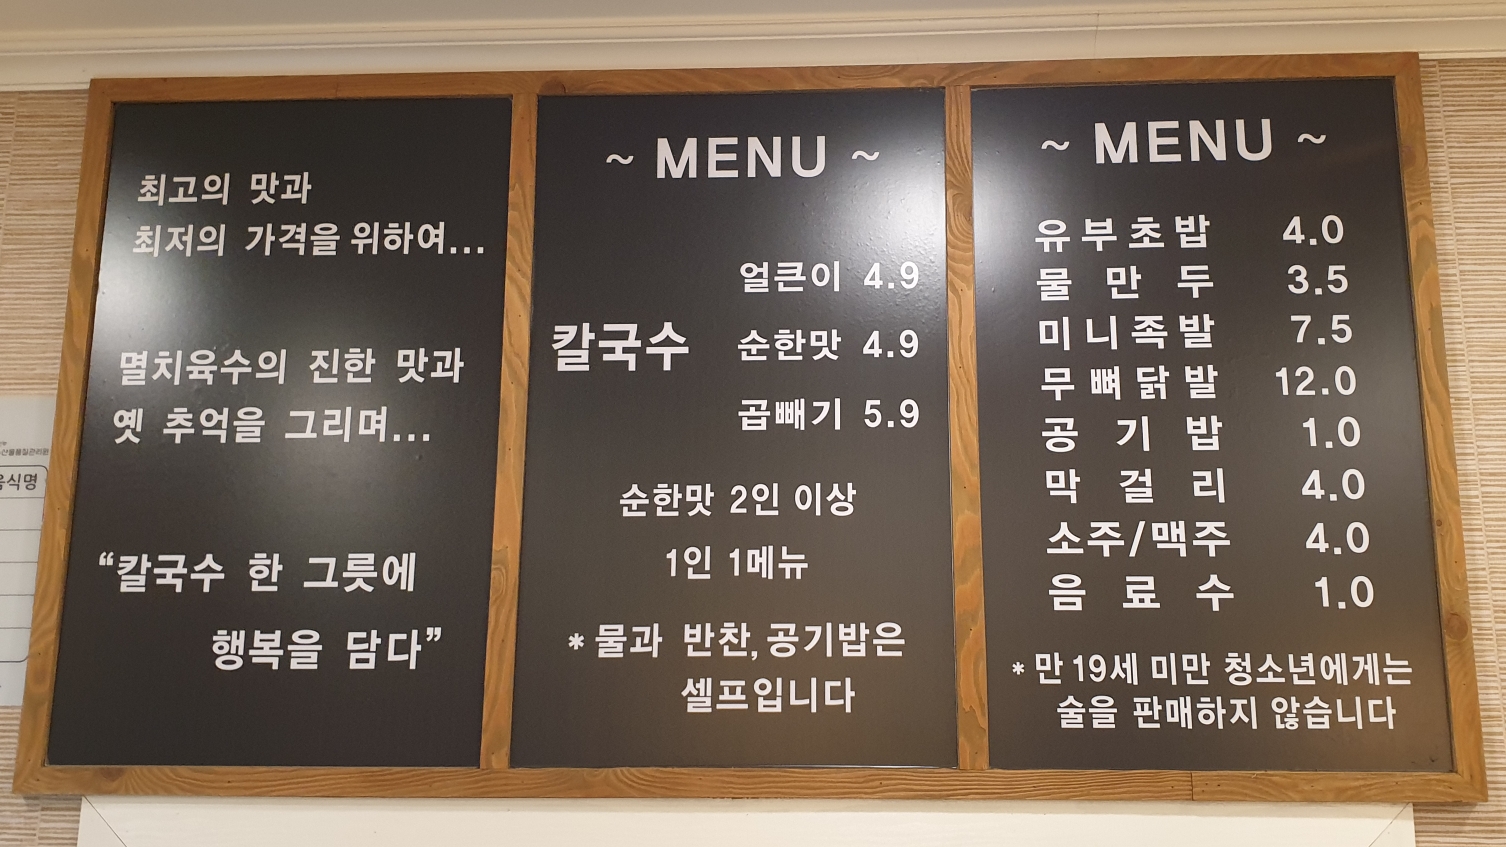 최고의 맛과
최저의 가격을 위하여...
멸치육수의 진한 맛과
옛 추억을 그리며...
“칼국수 한 그릇에
행복을 담다”
~ MENU ~
얼큰이 4.9
칼국수 순한맛 4.9
곱빼기 5.9
순한맛 2인 이상
1인 1메뉴
* 물과 반찬, 공기밥은
셀프입니다
~ MENU ~
유부초밥 4.0
물만두 3.5
미니족발 7.5
무뼈닭발 12.0
공기밥 1.0
막걸리 4.0
소주/맥주 4.0
음료수 1.0
* 만 19세 미만 청소년에게는
술을 판매하지 않습니다
식명